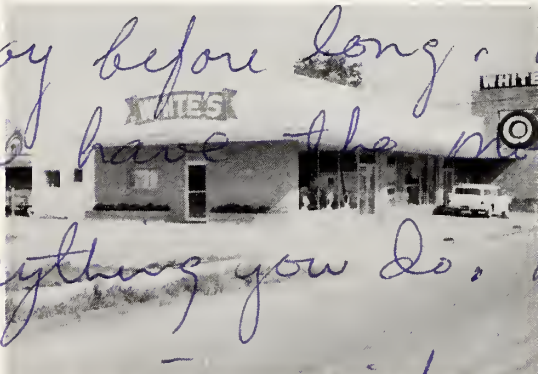 oy before long.
WHITE
WHITE'S
have the
ything you do.